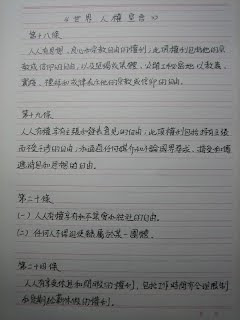 《世界人權宣言》
第十八條
人人有思想、良心和宗教自由的權利;此項權利包括改變他的宗
教或信仰的自由,以及單獨或集體、公開或秘密地以教義、
實踐、禮拜和戒律表示他的宗教或信仰的自由。
第十九條
人人有權享有主張和發表意見的自由;此項權利包括持有主張
而不受干涉的自由,和通過任何媒介和不論國界尋求、接受和傳
遞消息和思想的自由。
第二十條
(一)人人有權享有和平集會和結社的自由。
(二)任何人不得迫使隸屬於某一團體。
第二十四條
人人有享受休息和閒暇的權利,包括工作時間有合理限制
和定期給薪休假的權利。